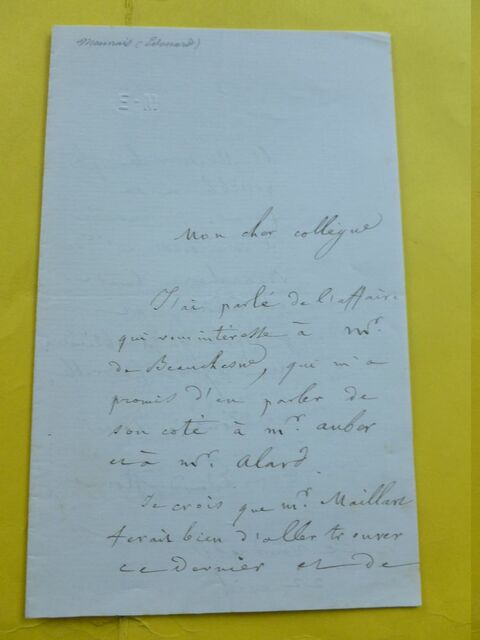 Monnais (Edouard)
Mon cher collègue
J'ai parlé de l'affaire
qui vous intéresse à Mr.
de Beauchesne, que m'a
promis d'en parler de
son coté à mr. auber
et à mr. alard.
Je crois que mr. Maillart
ferait bien d'aller trouver
ce dernier et de